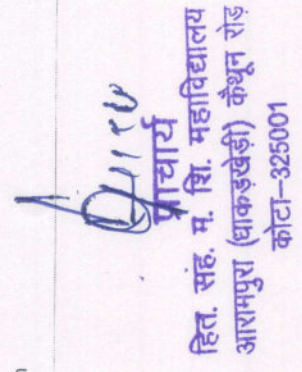 प्राचार्य
हित. संह. म. शि. महाविद्यालय
आरामपुरा (धाकड़खेड़ी) कैथून रोड़
कोटा-325001